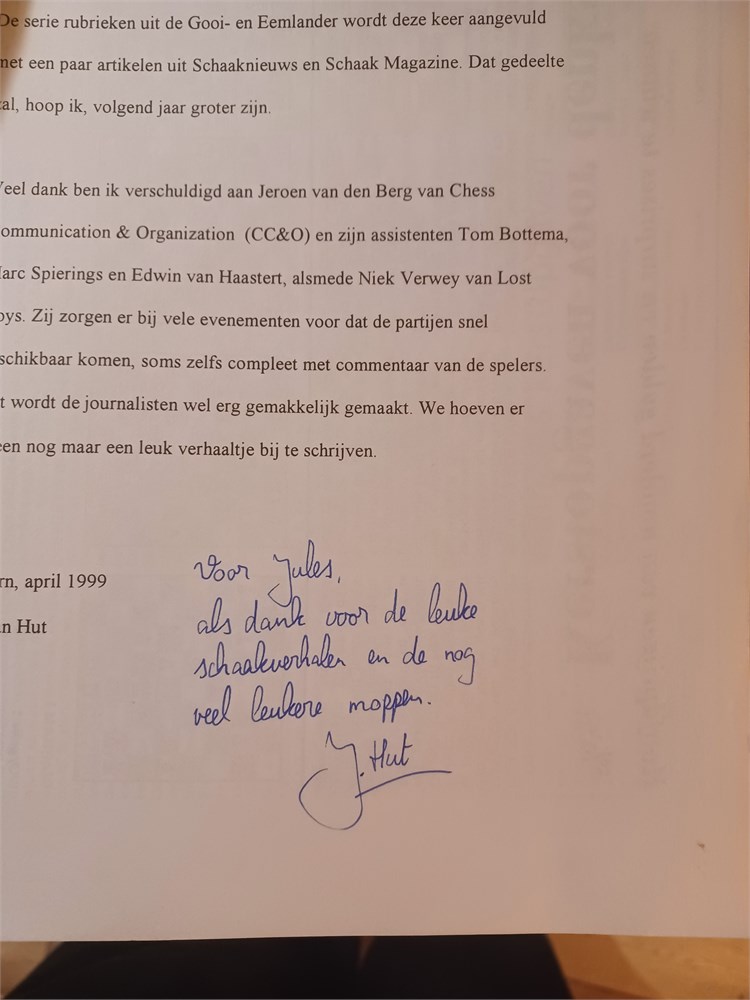 De serie rubrieken uit de Gooi- en Eemlander wordt deze keer aangevuld
met een paar artikelen uit Schaaknieuws en Schaak Magazine. Dat gedeelte
zal, hoop ik, volgend jaar groter zijn.
Veel dank ben ik verschuldigd aan Jeroen van den Berg van Chess
ommunication & Organization (CC&O) en zijn assistenten Tom Bottema,
arc Spierings en Edwin van Haastert, alsmede Niek Verwey van Lost
oys. Zij zorgen er bij vele evenementen voor dat de partijen snel
schikbaar komen, soms zelfs compleet met commentaar van de spelers.
t wordt de journalisten wel erg gemakkelijk gemaakt. We hoeven er
een nog maar een leuk verhaaltje bij te schrijven.
rn, april 1999
n Hut
Voor Jules,
als dank voor de leuke
schaakverhalen en de nog
veel leukere moppen.
J. Hut